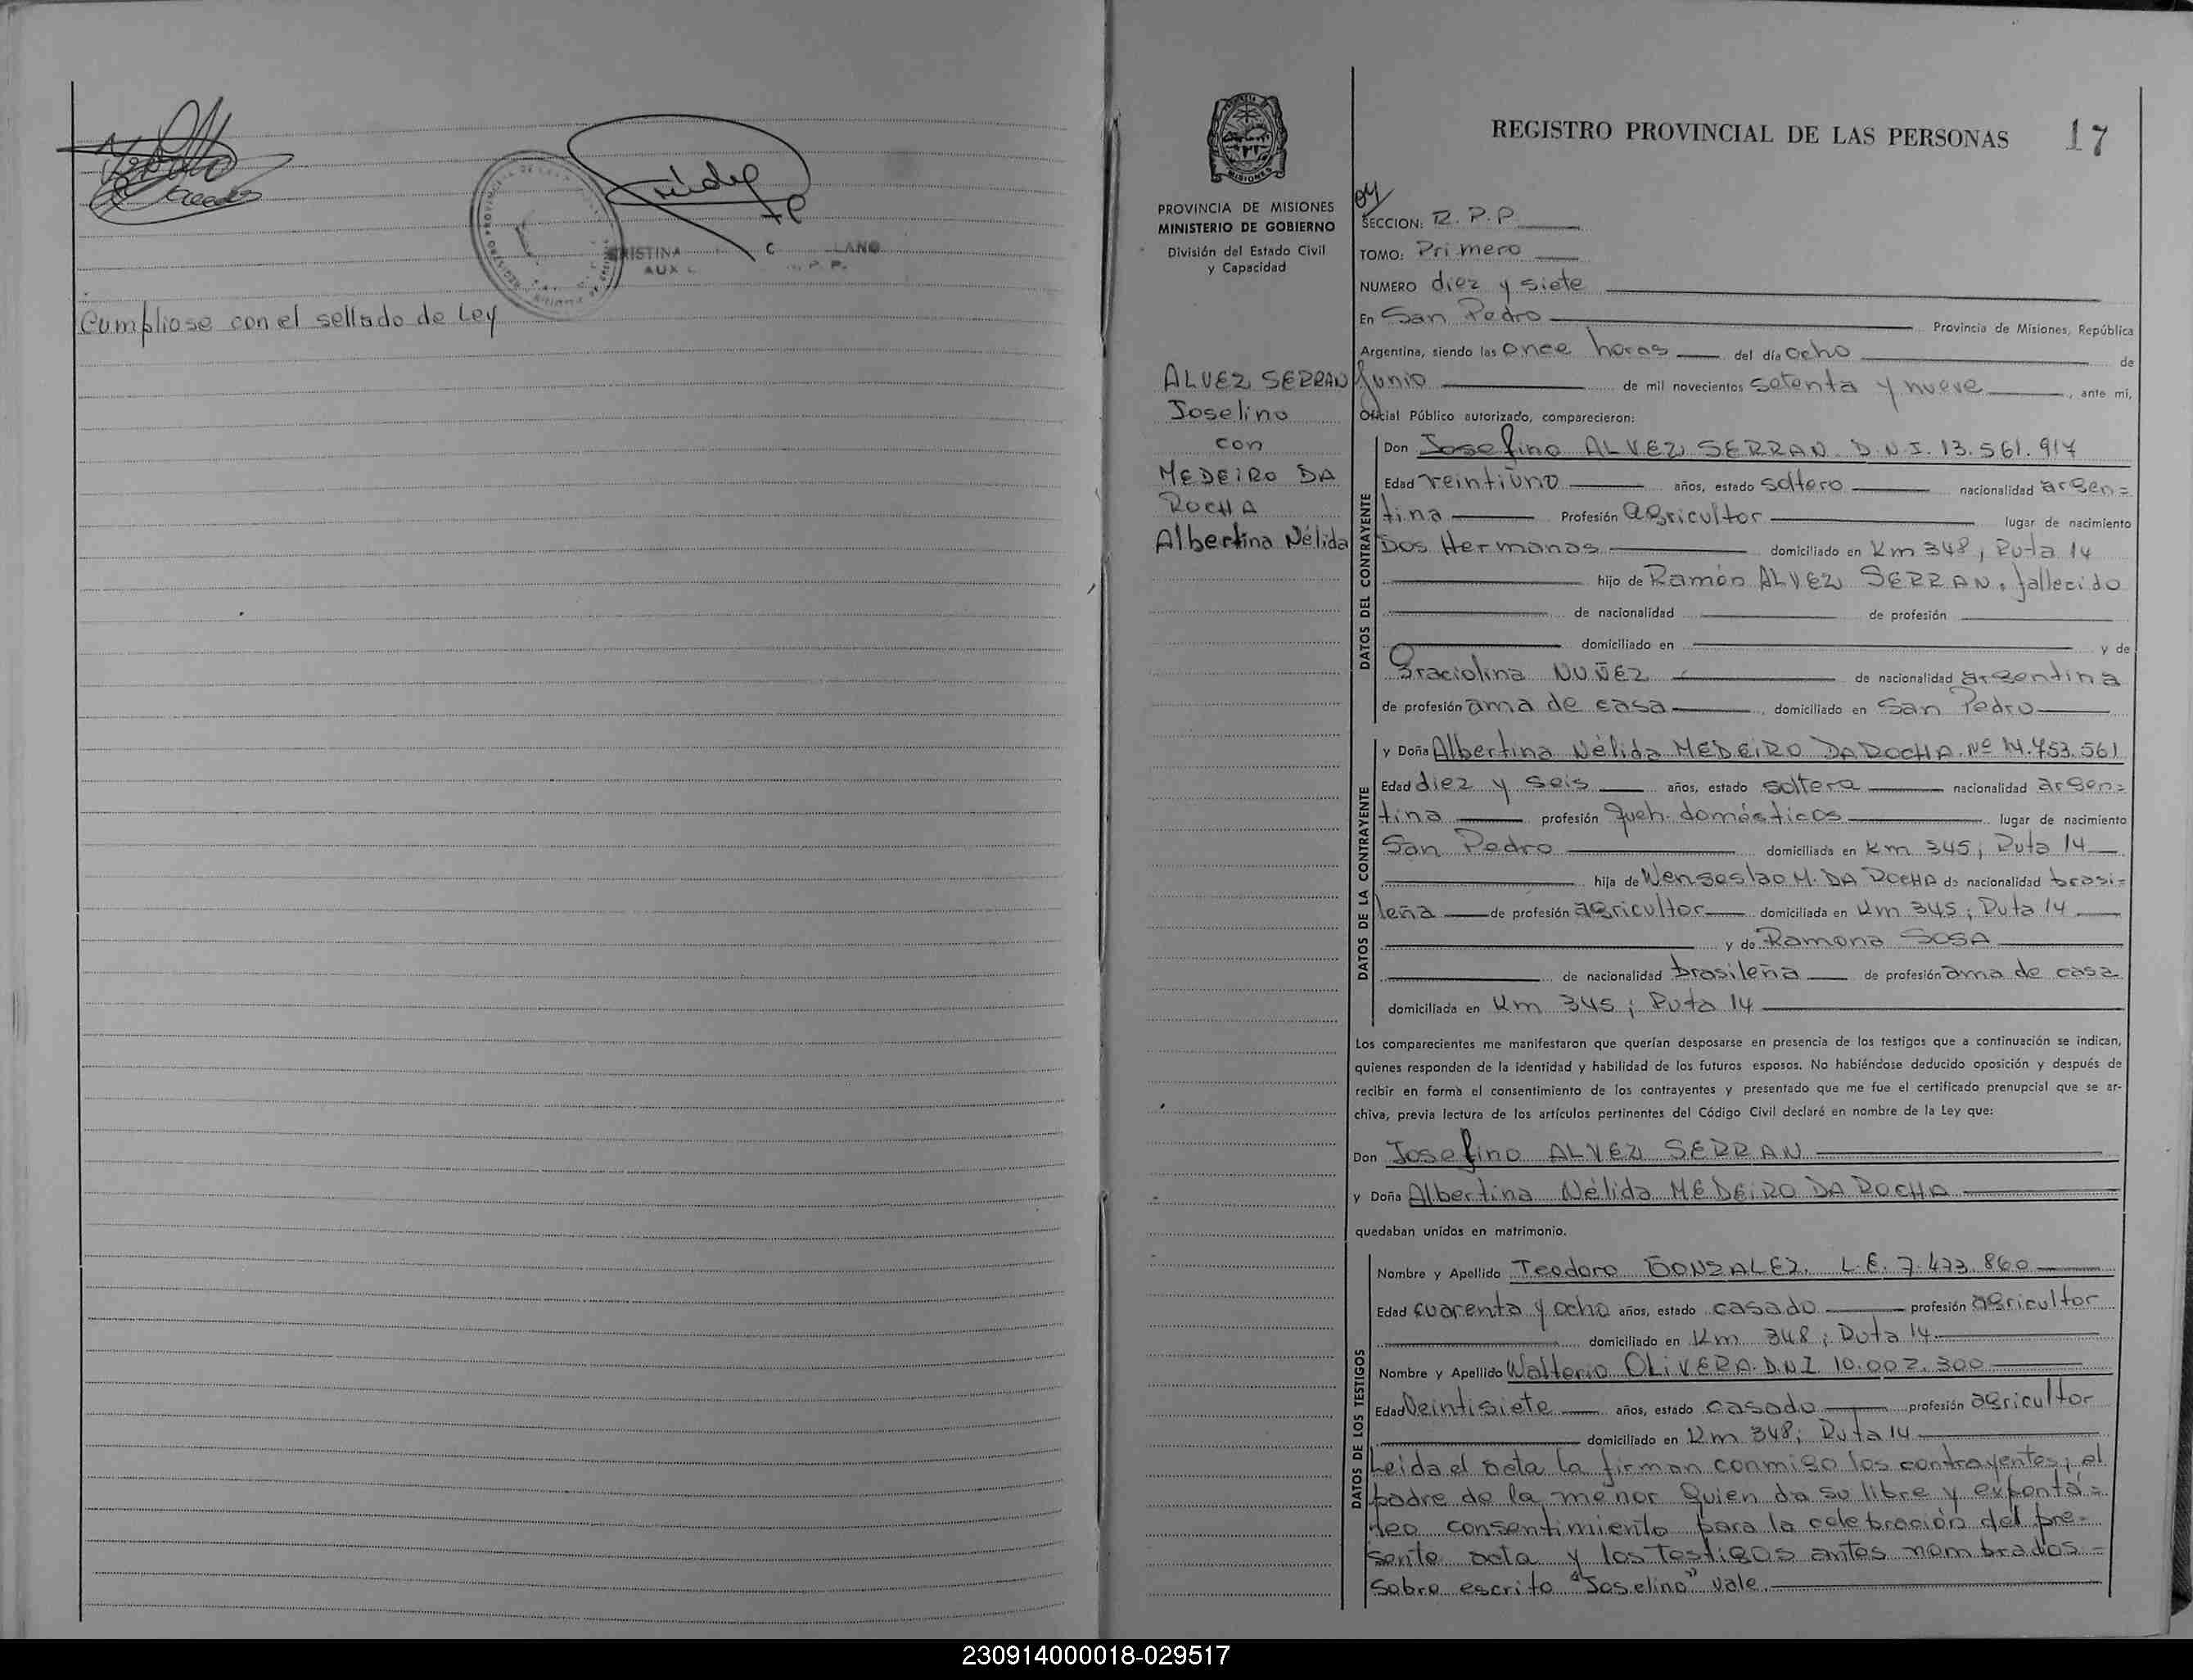 CRISTINA
AUX
LANO
Cumpliose con el sellado de Ley
REGISTRO PROVINCIAL DE LAS PERSONAS 17
PROVINCIA DE MISIONES
MINISTERIO DE GOBIERNO
División del Estado Civil
y Capacidad
ALVEZ SERRAN
Joselino
con
MEDEIRO DA
ROCHA
Albertina Nélida
04
SECCION: R.P.P.
TOMO: Primero
NUMERO diez y siete
En San Pedro Provincia de Misiones, República
Argentina, siendo las once horas del día ocho de
Junio de mil novecientos setenta y nueve, ante mí,
Oficial Público autorizado, comparecieron:
DATOS DEL CONTRAYENTE
Don Josefino ALVEZ SERRAN. D.N.I. 13.561.917
Edad veintiuno años, estado soltero nacionalidad argen=
tina Profesión agricultor lugar de nacimiento
Dos Hermanas domiciliado en Km 348, Ruta 14
hijo de Ramón ALVEZ SERRAN, fallecido
de nacionalidad de profesión
domiciliado en y de
Graciolina NUÑEZ de nacionalidad argentina
de profesión ama de casa, domiciliado en San Pedro
DATOS DE LA CONTRAYENTE
y Doña Albertina Nélida MEDEIRO DA ROCHA Nº 14.753.561
Edad diez y seis años, estado soltera nacionalidad argen=
tina profesión Queh. domésticos lugar de nacimiento
San Pedro domiciliada en Km 345; Ruta 14
hija de Wenseslao M. DA ROCHA de nacionalidad brasi=
leña de profesión agricultor domiciliada en Km 345; Ruta 14
y de Ramona SOSA
de nacionalidad brasileña de profesión ama de casa
domiciliada en Km 345; Ruta 14
Los comparecientes me manifestaron que querían desposarse en presencia de los testigos que a continuación se indican,
quienes responden de la identidad y habilidad de los futuros esposos. No habiéndose deducido oposición y después de
recibir en forma el consentimiento de los contrayentes y presentado que me fue el certificado prenupcial que se ar-
chiva, previa lectura de los artículos pertinentes del Código Civil declaré en nombre de la Ley que:
Don Josefino ALVEZ SERRAN
y Doña Albertina Nélida MEDEIRO DA ROCHA
quedaban unidos en matrimonio.
DATOS DE LOS TESTIGOS
Nombre y Apellido Teodoro GONZALEZ. L.E. 7.473.860
Edad cuarenta y ocho años, estado casado profesión agricultor
domiciliado en Km 348; Ruta 14
Nombre y Apellido Walterio OLIVERA. D.N.I 10.002.300
Edad Veintisiete años, estado casado profesión agricultor
domiciliado en Km 348; Ruta 14
Leida el acta la firman conmigo los contrayentes; el
padre de la menor Quien da su libre y expontá=
neo consentimiento para la celebración del pre=
sente acta y los testigos antes nombrados=
Sobre escrito "Joselino" Vale.
230914000018-029517